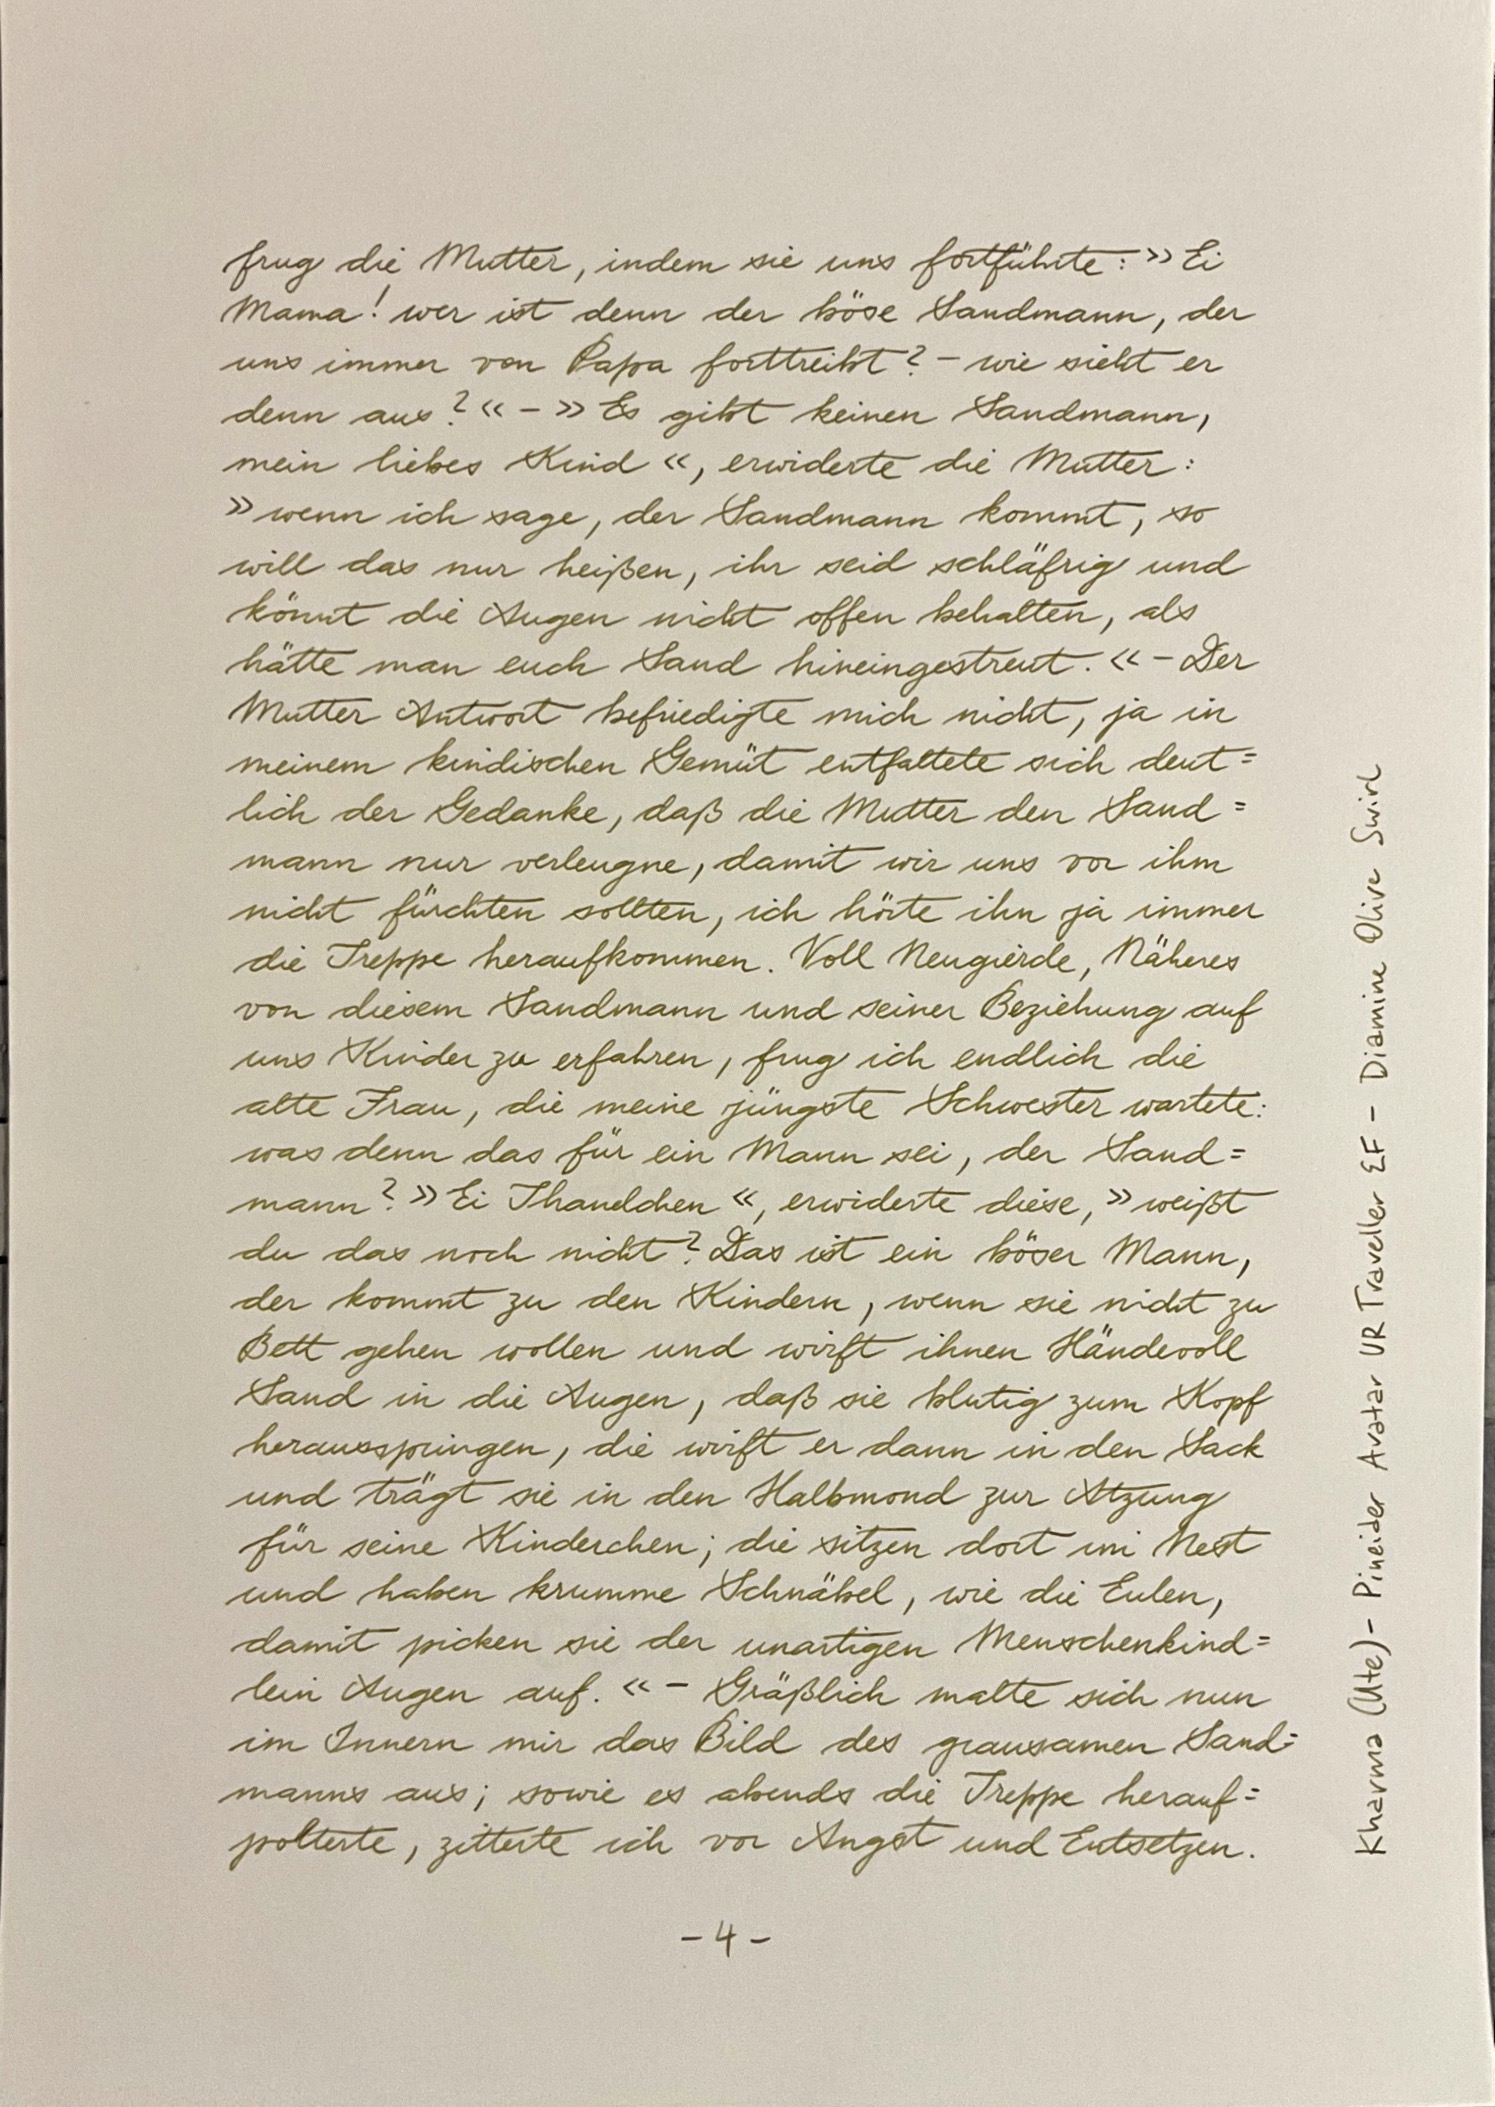 frug die Mutter, indem sie uns fortführte: »Ei
Mama! wer ist denn der böse Sandmann, der
uns immer von Papa forttreibt? – wie sieht er
denn aus?« – »Es gibt keinen Sandmann,
mein liebes Kind«, erwiderte die Mutter:
»wenn ich sage, der Sandmann kommt, so
will das nur heißen, ihr seid schläfrig und
könnt die Augen nicht offen behalten, als
hätte man euch Sand hineingestreut.« – Der
Mutter Antwort befriedigte mich nicht, ja in
meinem kindischen Gemüt entfaltete sich deut=
lich der Gedanke, daß die Mutter den Sand=
mann nur verleugne, damit wir uns vor ihm
nicht fürchten sollten, ich hörte ihn ja immer
die Treppe heraufkommen. Voll Neugierde, Näheres
von diesem Sandmann und seiner Beziehung auf
uns Kinder zu erfahren, frug ich endlich die
alte Frau, die meine jüngste Schwester wartete:
was denn das für ein Mann sei, der Sand=
mann? »Ei Thanelchen«, erwiderte diese, »weißt
du das noch nicht? Das ist ein böser Mann,
der kommt zu den Kindern, wenn sie nicht zu
Bett gehen wollen und wirft ihnen Händevoll
Sand in die Augen, daß sie blutig zum Kopf
herausspringen, die wirft er dann in den Sack
und trägt sie in den Halbmond zur Atzung
für seine Kinderchen; die sitzen dort im Nest
und haben krumme Schnäbel, wie die Eulen,
damit picken sie der unartigen Menschenkind=
lein Augen auf.« – Gräßlich malte sich nun
im Innern mir das Bild des grausamen Sand=
manns aus; sowie es abends die Treppe herauf=
polterte, zitterte ich vor Angst und Entsetzen.
– 4 –
Kharma (Ute) – Pineider Avatar UR Traveller EF – Diamine Olive Swirl